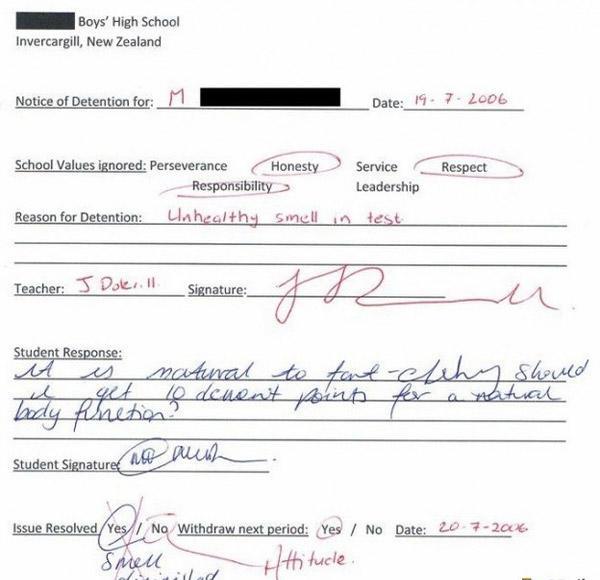 Boys' High School
Invercargill, New Zealand
Notice of Detention for: M Date: 19-7-2006
School Values ignored: Perseverance Honesty Service Respect
Responsibility Leadership
Reason for Detention: Unhealthy smell in test
Teacher: J Signature:
Student Response:
it is natural to why should
i get 10 points for a natural
body function?
Student Signature:
Issue Resolved Yes / No Withdraw next period: Yes / No Date: 20-7-2006
Smell Attitude.